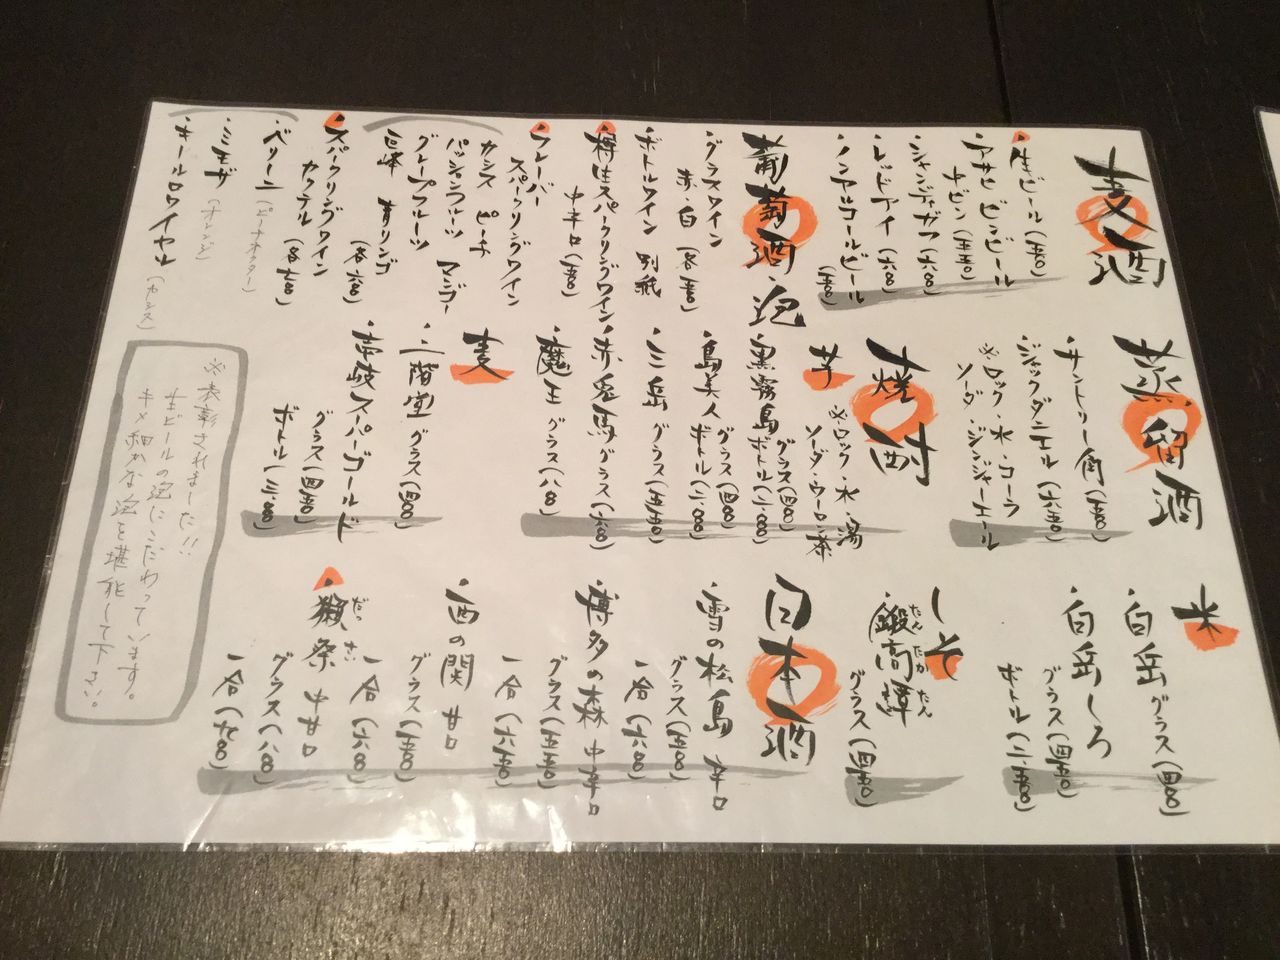 麦酒
・生ビール（五〇〇）
アサヒ ビンビール
中ビン（五五〇）
・シャンディガフ（六〇〇）
・レッドアイ（六〇〇）
・ノンアルコールビール
（五〇〇）
葡萄酒・泡
・グラスワイン
赤・白（各五〇〇）
・ボトルワイン 別紙
・樽生スパークリングワイン
中辛口（五〇〇）
・フレーバー
スパークリングワイン
カシス ピーチ
パッションフルーツ マンゴー
グレープフルーツ
巨峰 青リンゴ
（各六〇〇）
・スパークリングワイン
カクテル（各七〇〇）
・ベリーニ（ピーチネクター）
・ミモザ（オレンジ）
・キールロワイヤル（カシス）
蒸留酒
・サントリー角（五〇〇）
・ジャックダニエル（六五〇）
※ロック・水・コーラ
ソーダ・ジンジャーエール
焼酎
芋
※ロック・水・湯
ソーダ・ウーロン茶
・黒霧島 グラス（四〇〇）
ボトル（二、〇〇〇）
・島美人 グラス（四〇〇）
ボトル（二、〇〇〇）
・三岳 グラス（五五〇）
・赤兎馬 グラス（六〇〇）
・魔王 グラス（八〇〇）
麦
・二階堂 グラス（四〇〇）
・壱岐スーパーゴールド
グラス（四五〇）
ボトル（三、〇〇〇）
米
・白岳 グラス（四〇〇）
・白岳しろ
グラス（四五〇）
ボトル（二、五〇〇）
しそ
・鍛高譚
たんたかたん
グラス（四五〇）
日本酒
・雪の松島 辛口
グラス（五〇〇）
一合（六〇〇）
・博多の森 中辛口
グラス（五五〇）
一合（六五〇）
・西の関 甘口
グラス（五〇〇）
一合（六〇〇）
・獺祭 中甘口
だっさい
グラス（八〇〇）
一合（九〇〇）
※表彰されました!!
生ビールの泡にこだわっています。
キメ細かな泡を堪能して下さい。